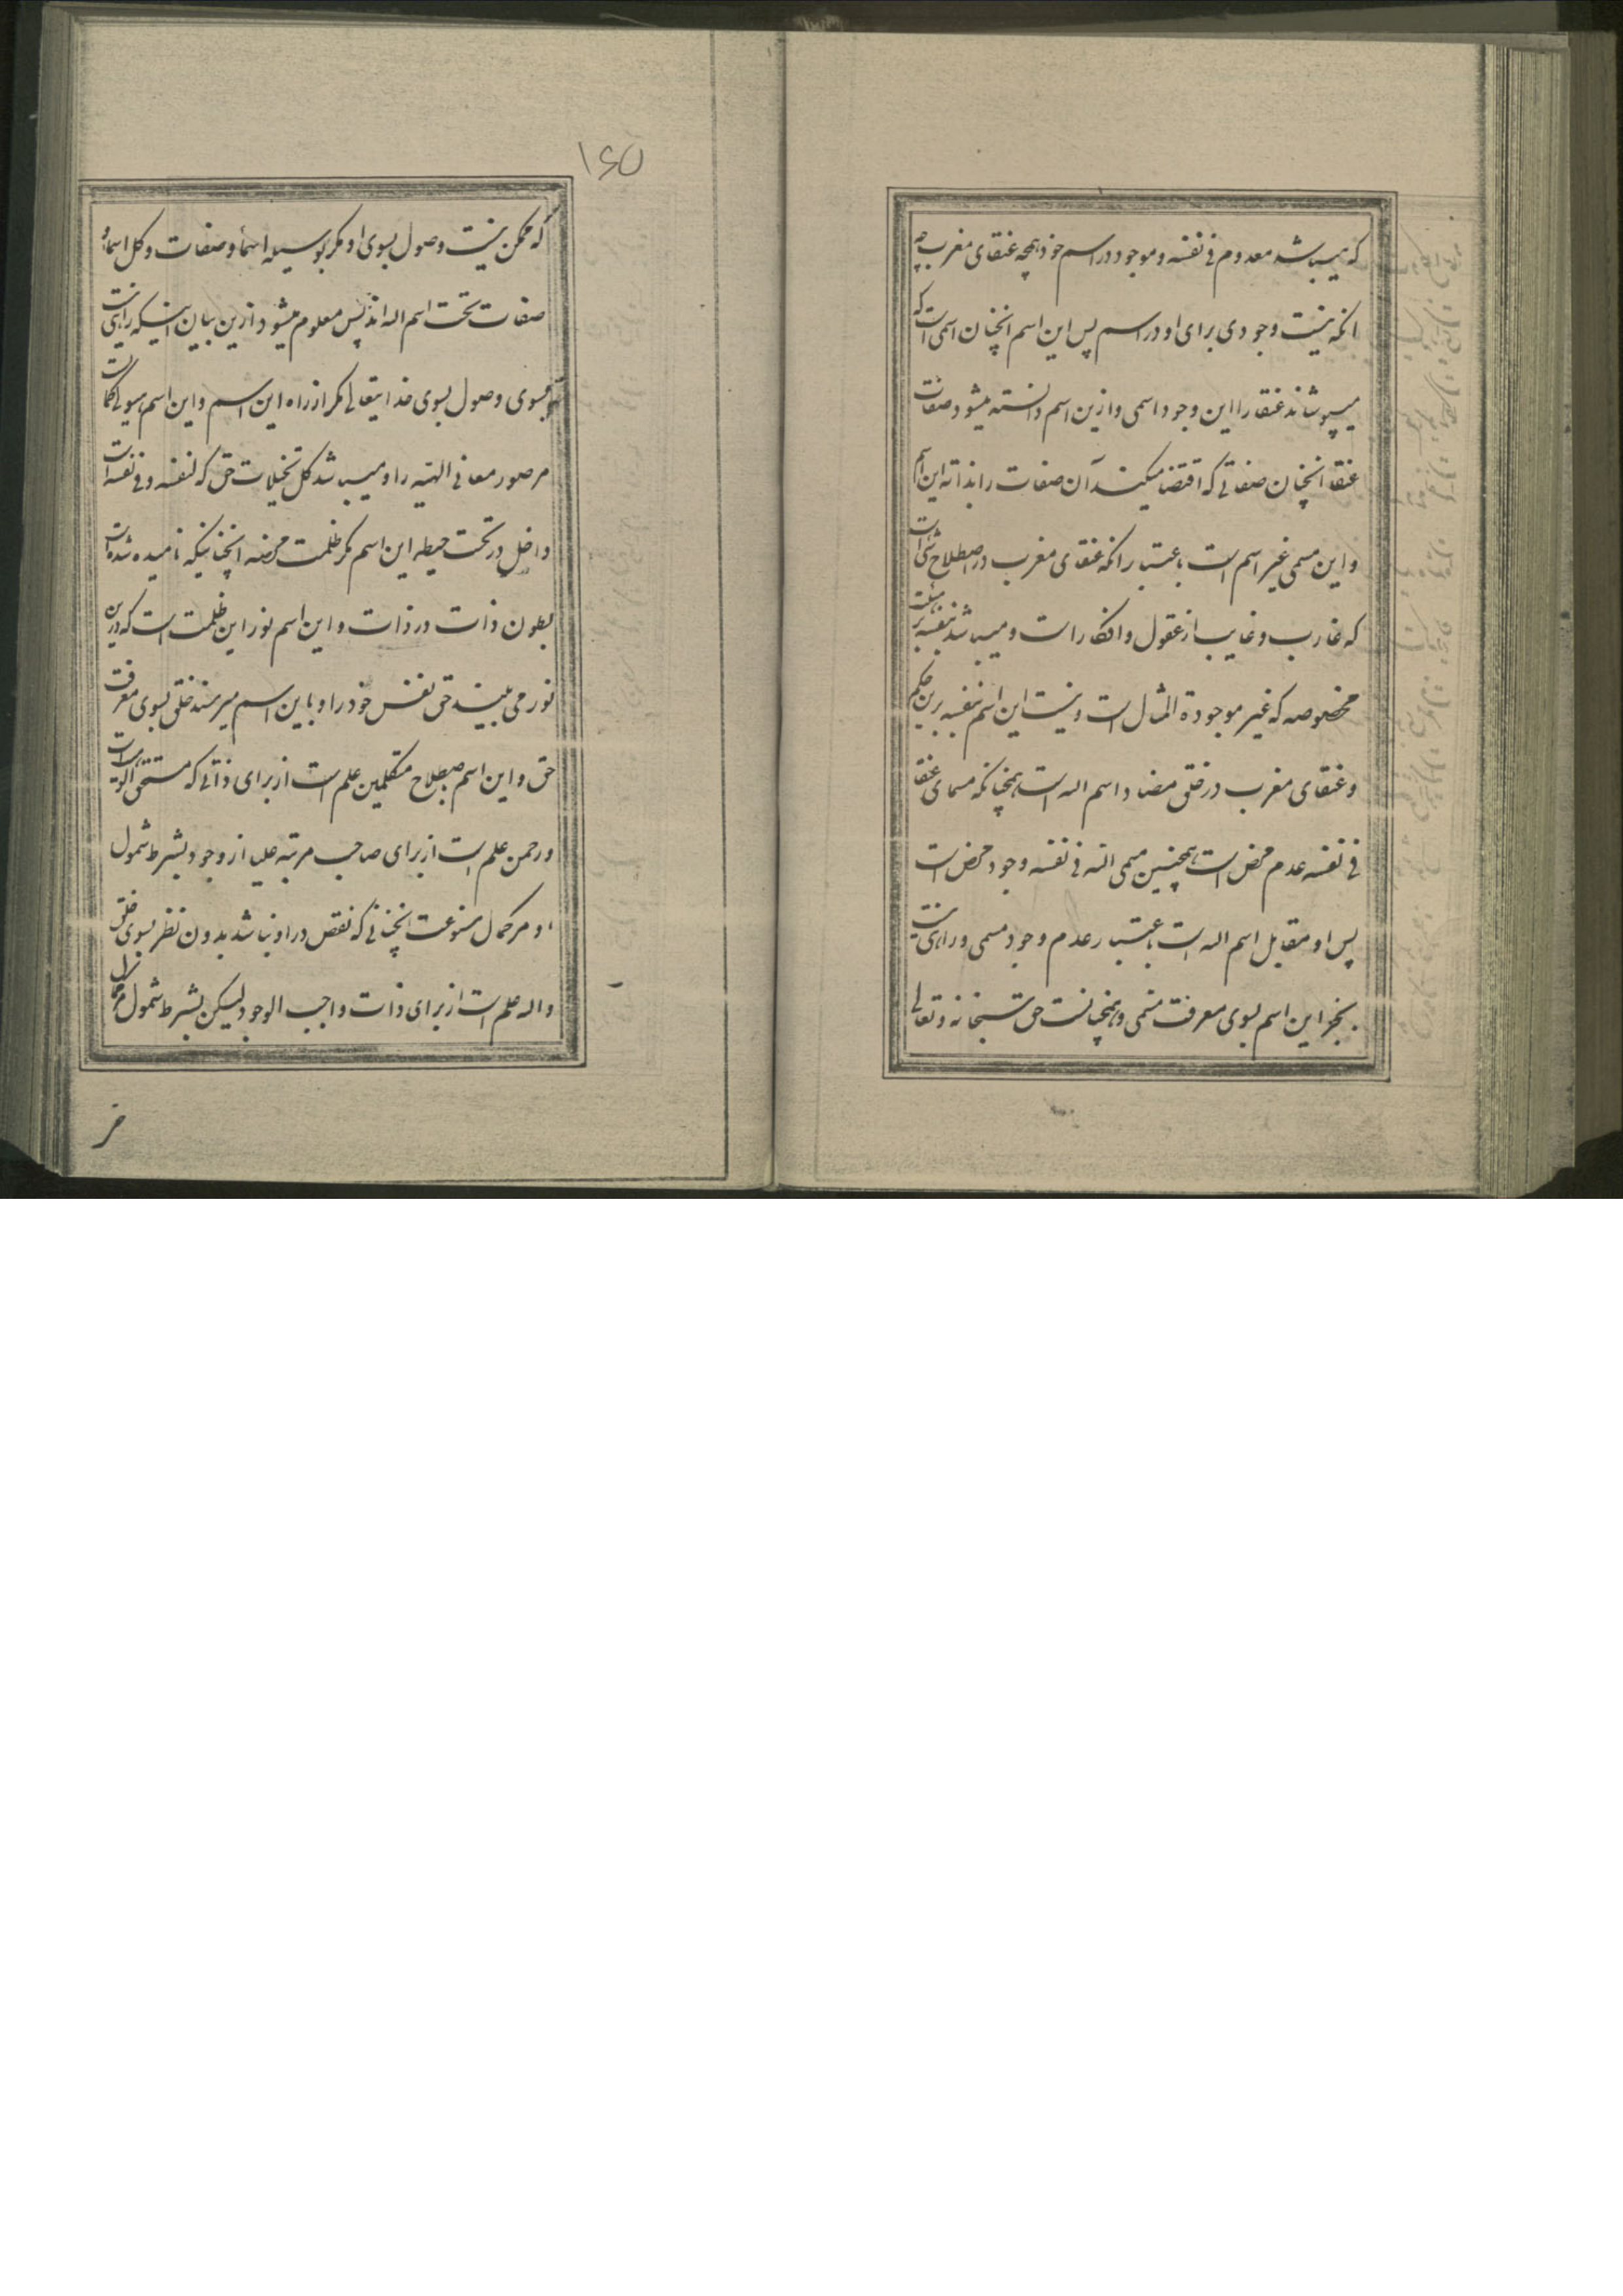 که میباشد معدوم فی نفسه و موجود در اسم خود همچه عنقای مغرب چه
انکه نیست وجودی برای او در اسم پس این اسم انچنان اسمی است که
میپوشاند عنقا را این وجود اسمی و ازین اسم دانسته میشود صفات
عنقا انچنان صفاتی که اقتضا میکند آن صفات را بذاته این اسم
و این مسمی غیر اسم است باعتبار انکه عنقای مغرب در اصطلاح شی است
که غارب و غایب از عقول و افکار است و میباشد بنفسه بر هیئت
مخصوصه که غیر موجودة المثال است و نیست این اسم بنفسه برین حکم
و عنقای مغرب در خلق مضاد اسم اله است همچنانکه مسمای عنقا
فی نفسه عدم محض است همچنین مسمی الله فی نفسه وجود محض است
پس او مقابل اسم اله است باعتبار عدم وجود مسمی و راهی نیست
بجز این اسم بسوی معرفت مسمی و همچنانست حق سبحانه و تعالی
۱۶۵
که ممکن نیست وصول بسوی او مکر بوسیله اسما و صفات و کل اسما و
صفات تحت اسم اله اند پس معلوم میشود ازین بیان اینکه راهی نیست
بسوی وصول بسوی خدایتعالی مکر از راه این اسم و این اسم هیولی کمالات
مر صور معانی الهیه را و میباشد کل تجلیات حق که لنفسه و فی نفسه است
داخل در تحت حیطه این اسم مکر ظلمت محضه انچنانیکه نامیده شده است
بطون ذات در ذات و این اسم نور این ظلمت است که درین
نور می بیند حق نفس خود را و باین اسم میرسند خلق بسوی معرفت
حق و این اسم باصطلاح متکلمین علم است از برای ذاتی که مستحق الوهیت است
و رحمن علم است از برای صاحب مرتبه علیا از وجود بشرط شمول
او مر کمال متنوعت انچنانی که نقص در او نباشد بدون نظر بسوی خلق
و اله علم است از برای ذات واجب الوجود لیکن بشرط شمول مر کمال